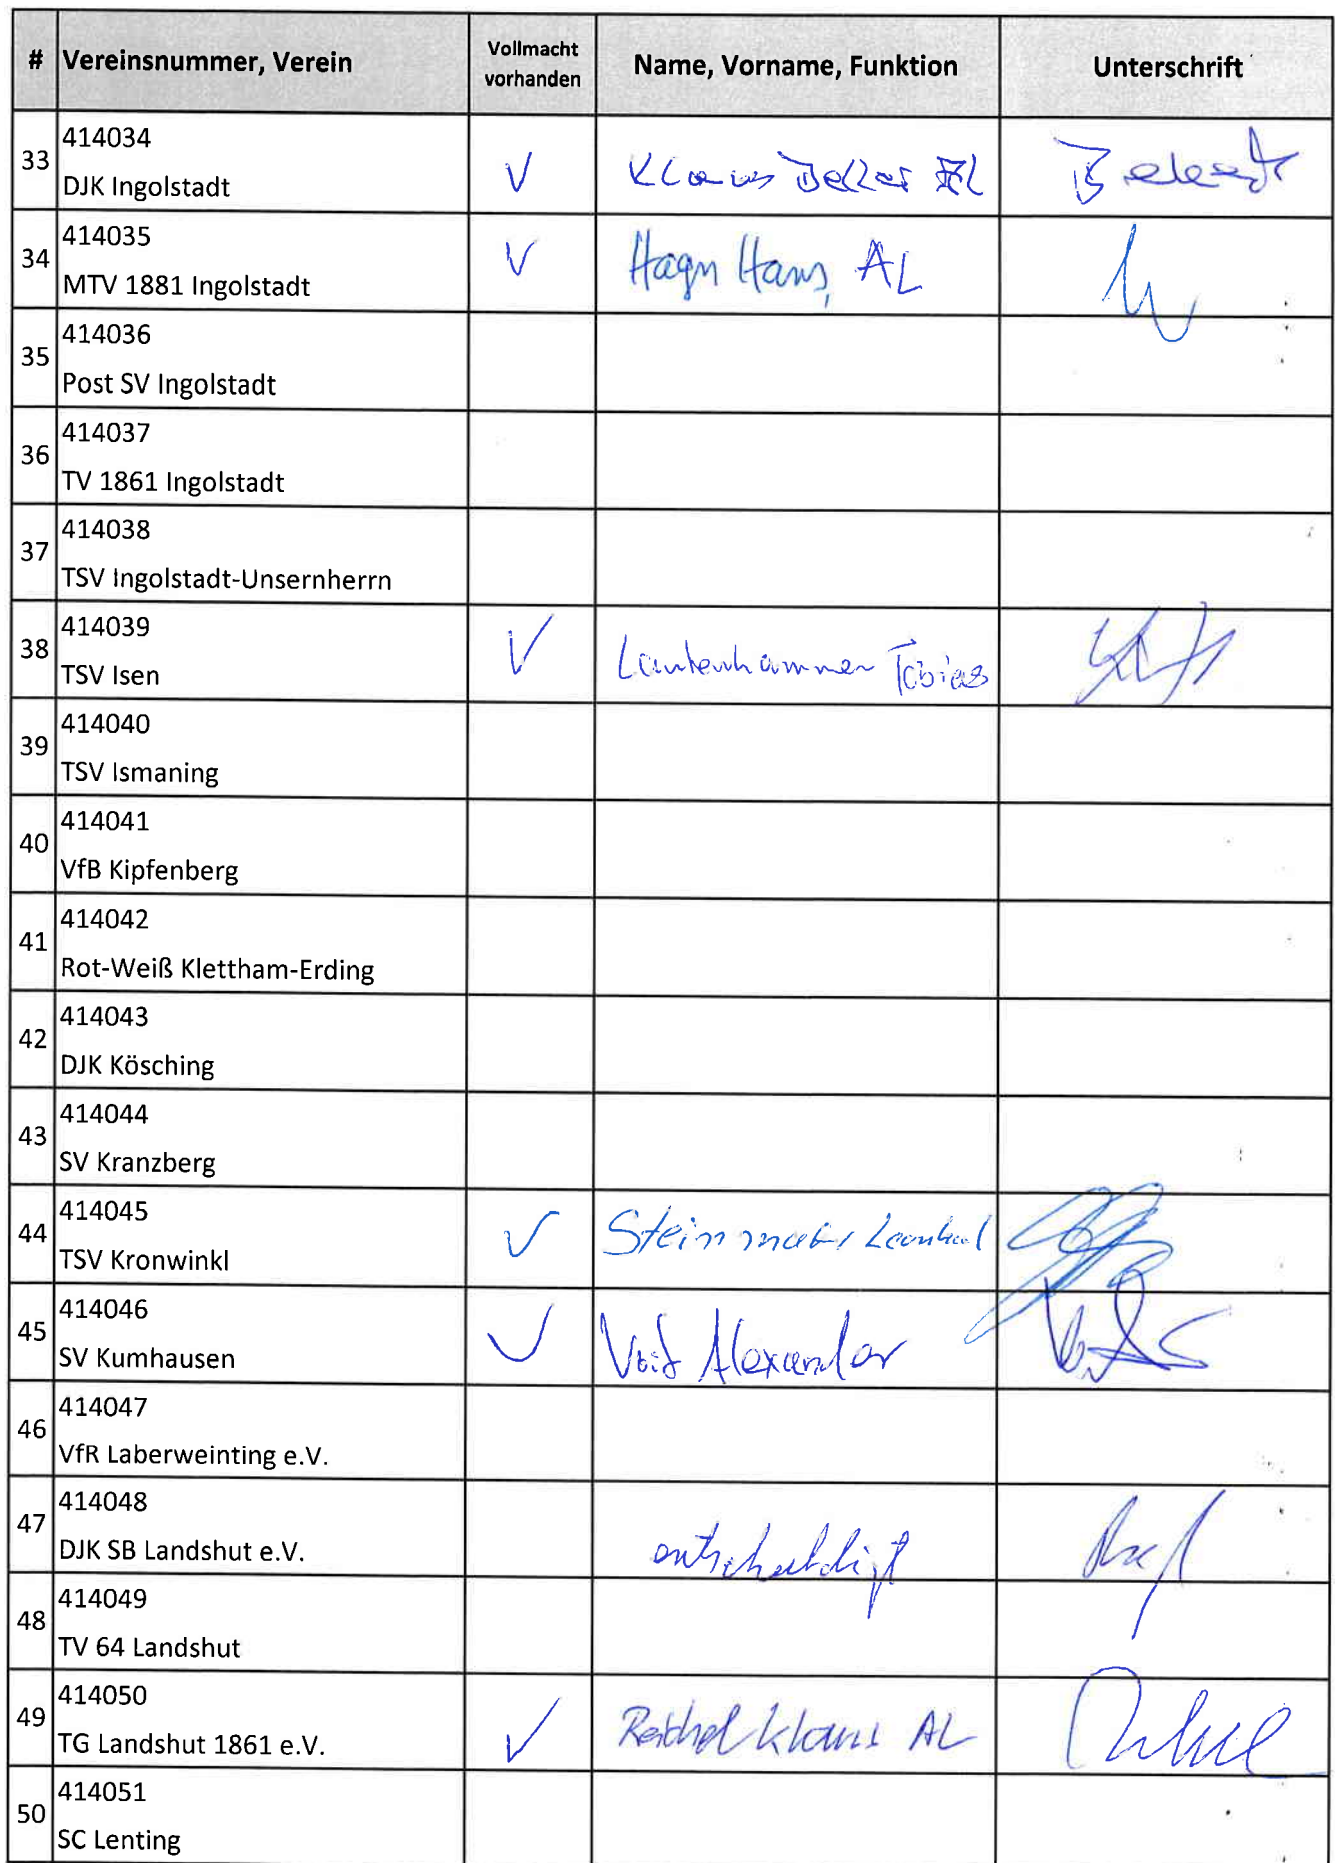 # Vereinsnummer, Verein Vollmacht vorhanden Name, Vorname, Funktion Unterschrift
33 414034
DJK Ingolstadt Klaus AL
34 414035
MTV 1881 Ingolstadt Hagn Hans, AL
35 414036
Post SV Ingolstadt
36 414037
TV 1861 Ingolstadt
37 414038
TSV Ingolstadt-Unsernherrn
38 414039
TSV Isen Lautenhammer Tobias
39 414040
TSV Ismaning
40 414041
VfB Kipfenberg
41 414042
Rot-Weiß Klettham-Erding
42 414043
DJK Kösching
43 414044
SV Kranzberg
44 414045
TSV Kronwinkl
45 414046
SV Kumhausen Voit Alexander
46 414047
VfR Laberweinting e.V.
47 414048
DJK SB Landshut e.V. entschuldigt
48 414049
TV 64 Landshut
49 414050
TG Landshut 1861 e.V. Reichel Klaus AL
50 414051
SC Lenting